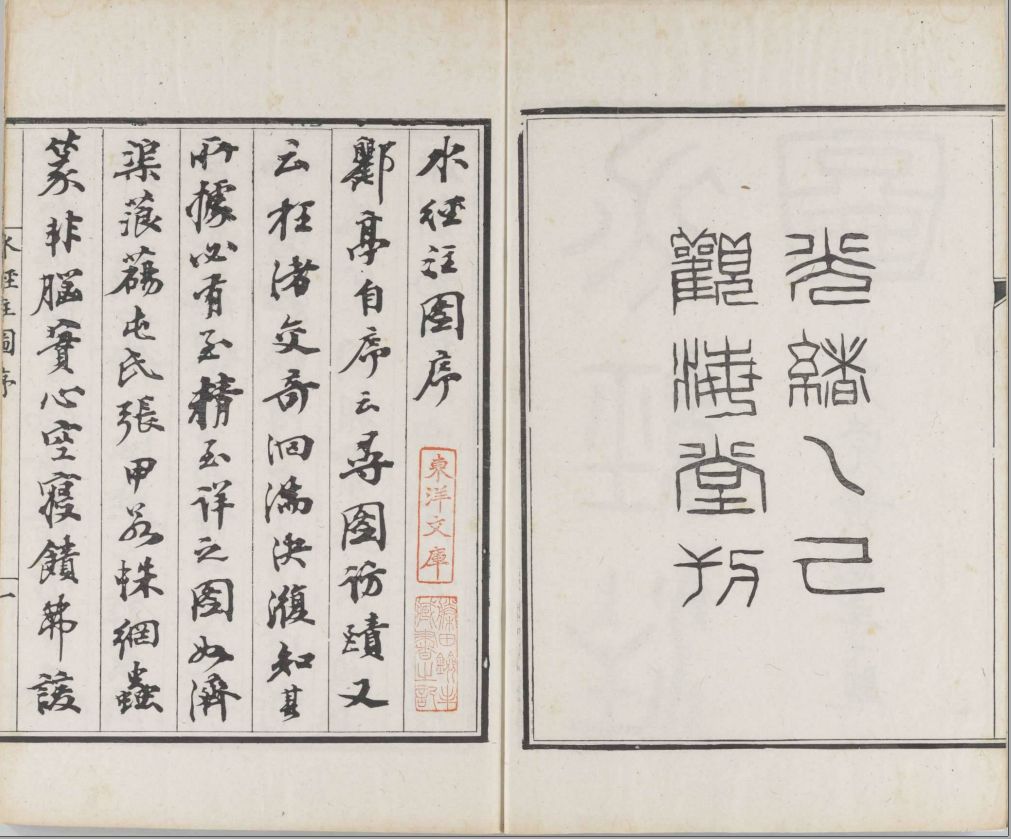 光緒乙巳
觀海堂刊
水經注圖序
東洋文庫
藤田劍丰
藏書之記
酈亭自序云尋圖訪蹟又
云枉渚交奇洄湍決澓知其
所據必有至精至詳之圖如濟
渠蒗蕩屯氏張甲若蛛網蟲
篆非腦實心空寢饋弗諼
水經注圖序 一